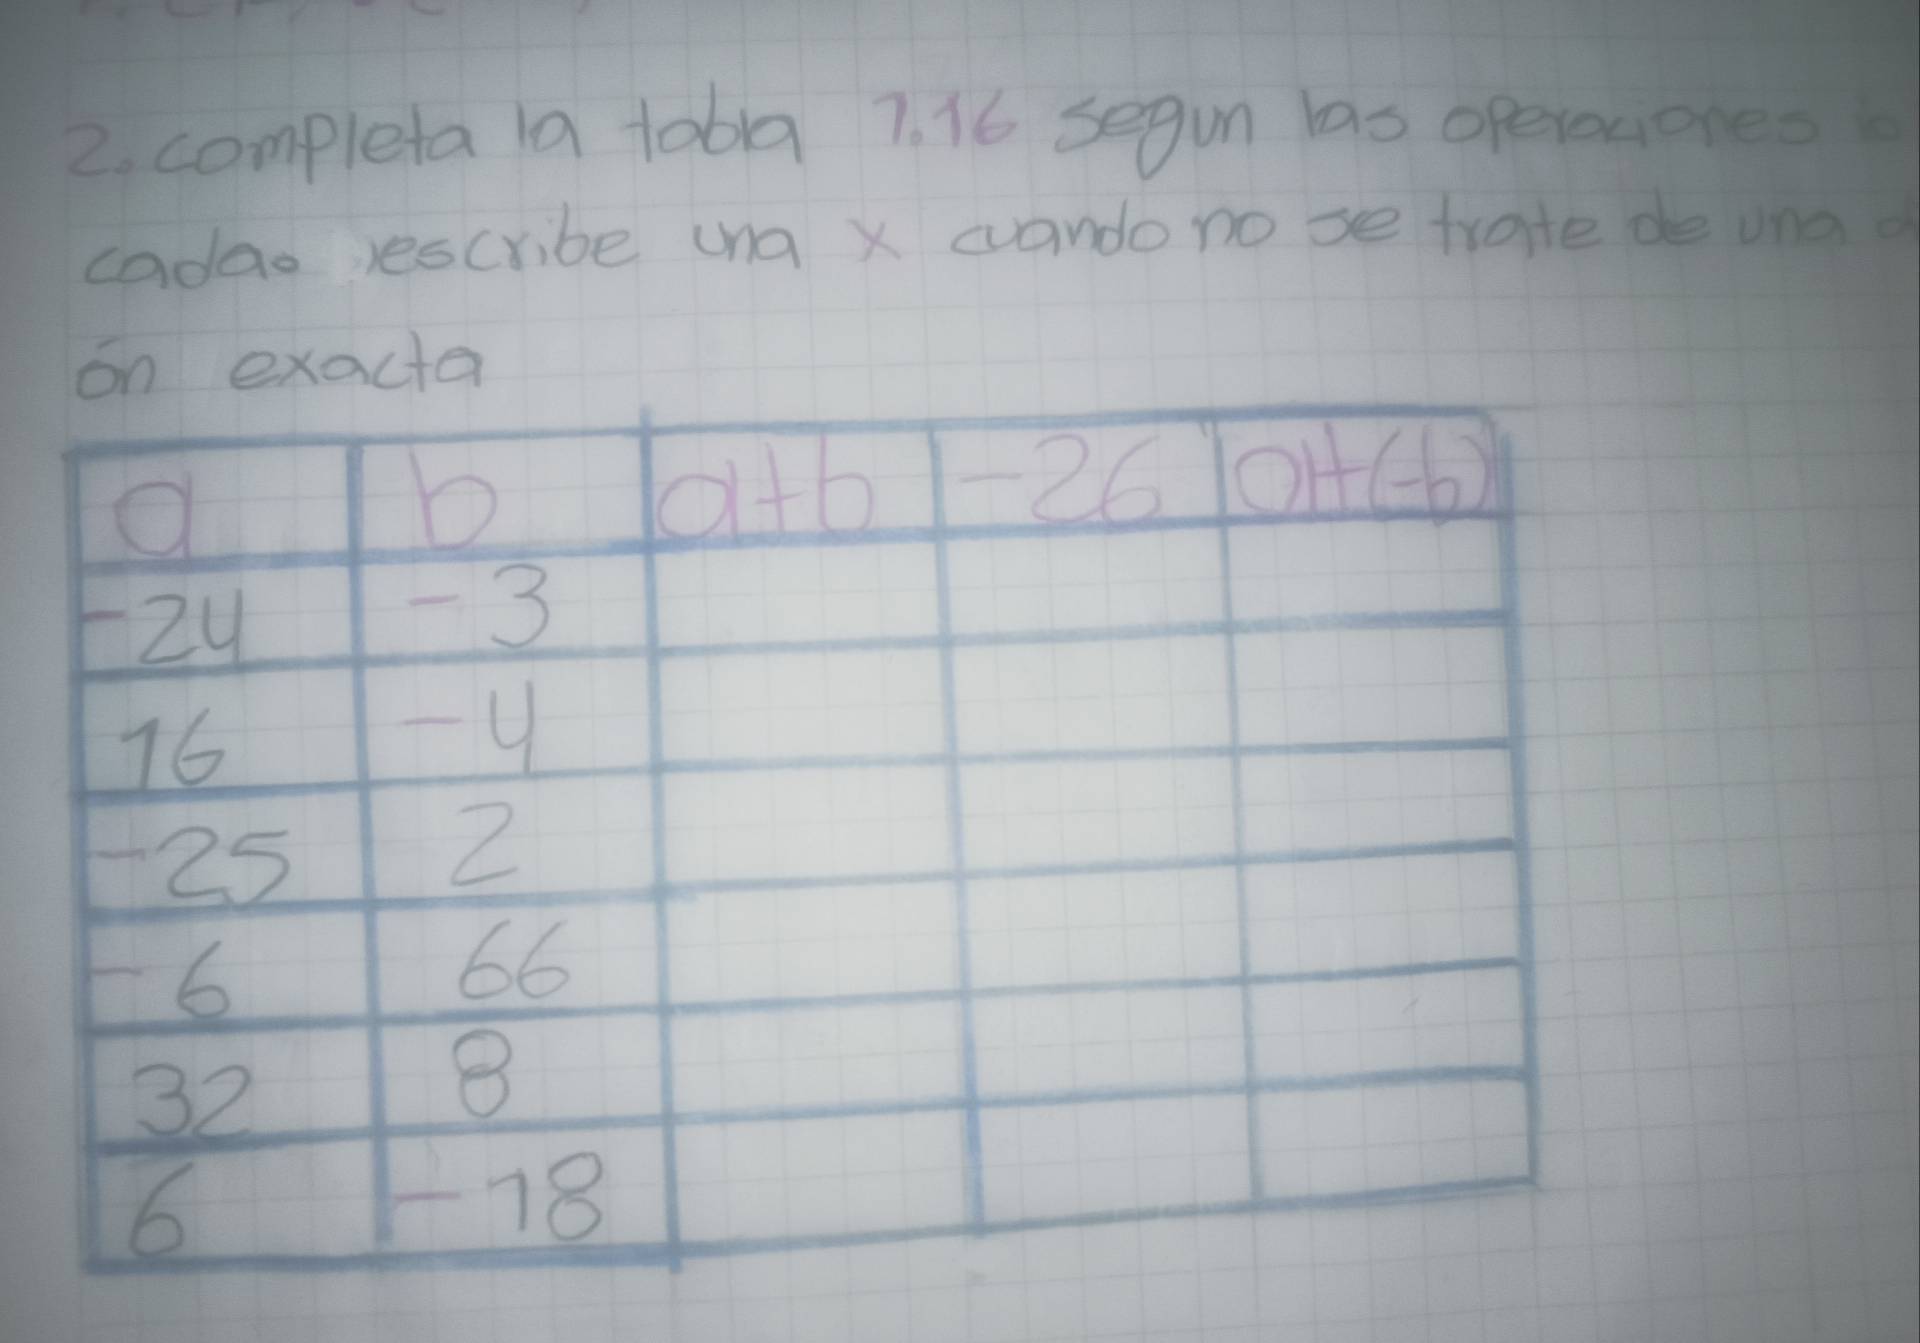 2. completa la tabla 1.16 segun las operaciones
cada. escribe una x cuando no se trate de una
ón exacta
a b a+b -26 a+(-b)
-24 -3
16 -4
-25 2
-6 66
32 8
6 -18